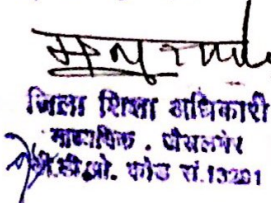 जिला शिक्षा अधिकारी
माध्यमिक . जैसलमेर
डी.डी.ओ. कोड सं.13281